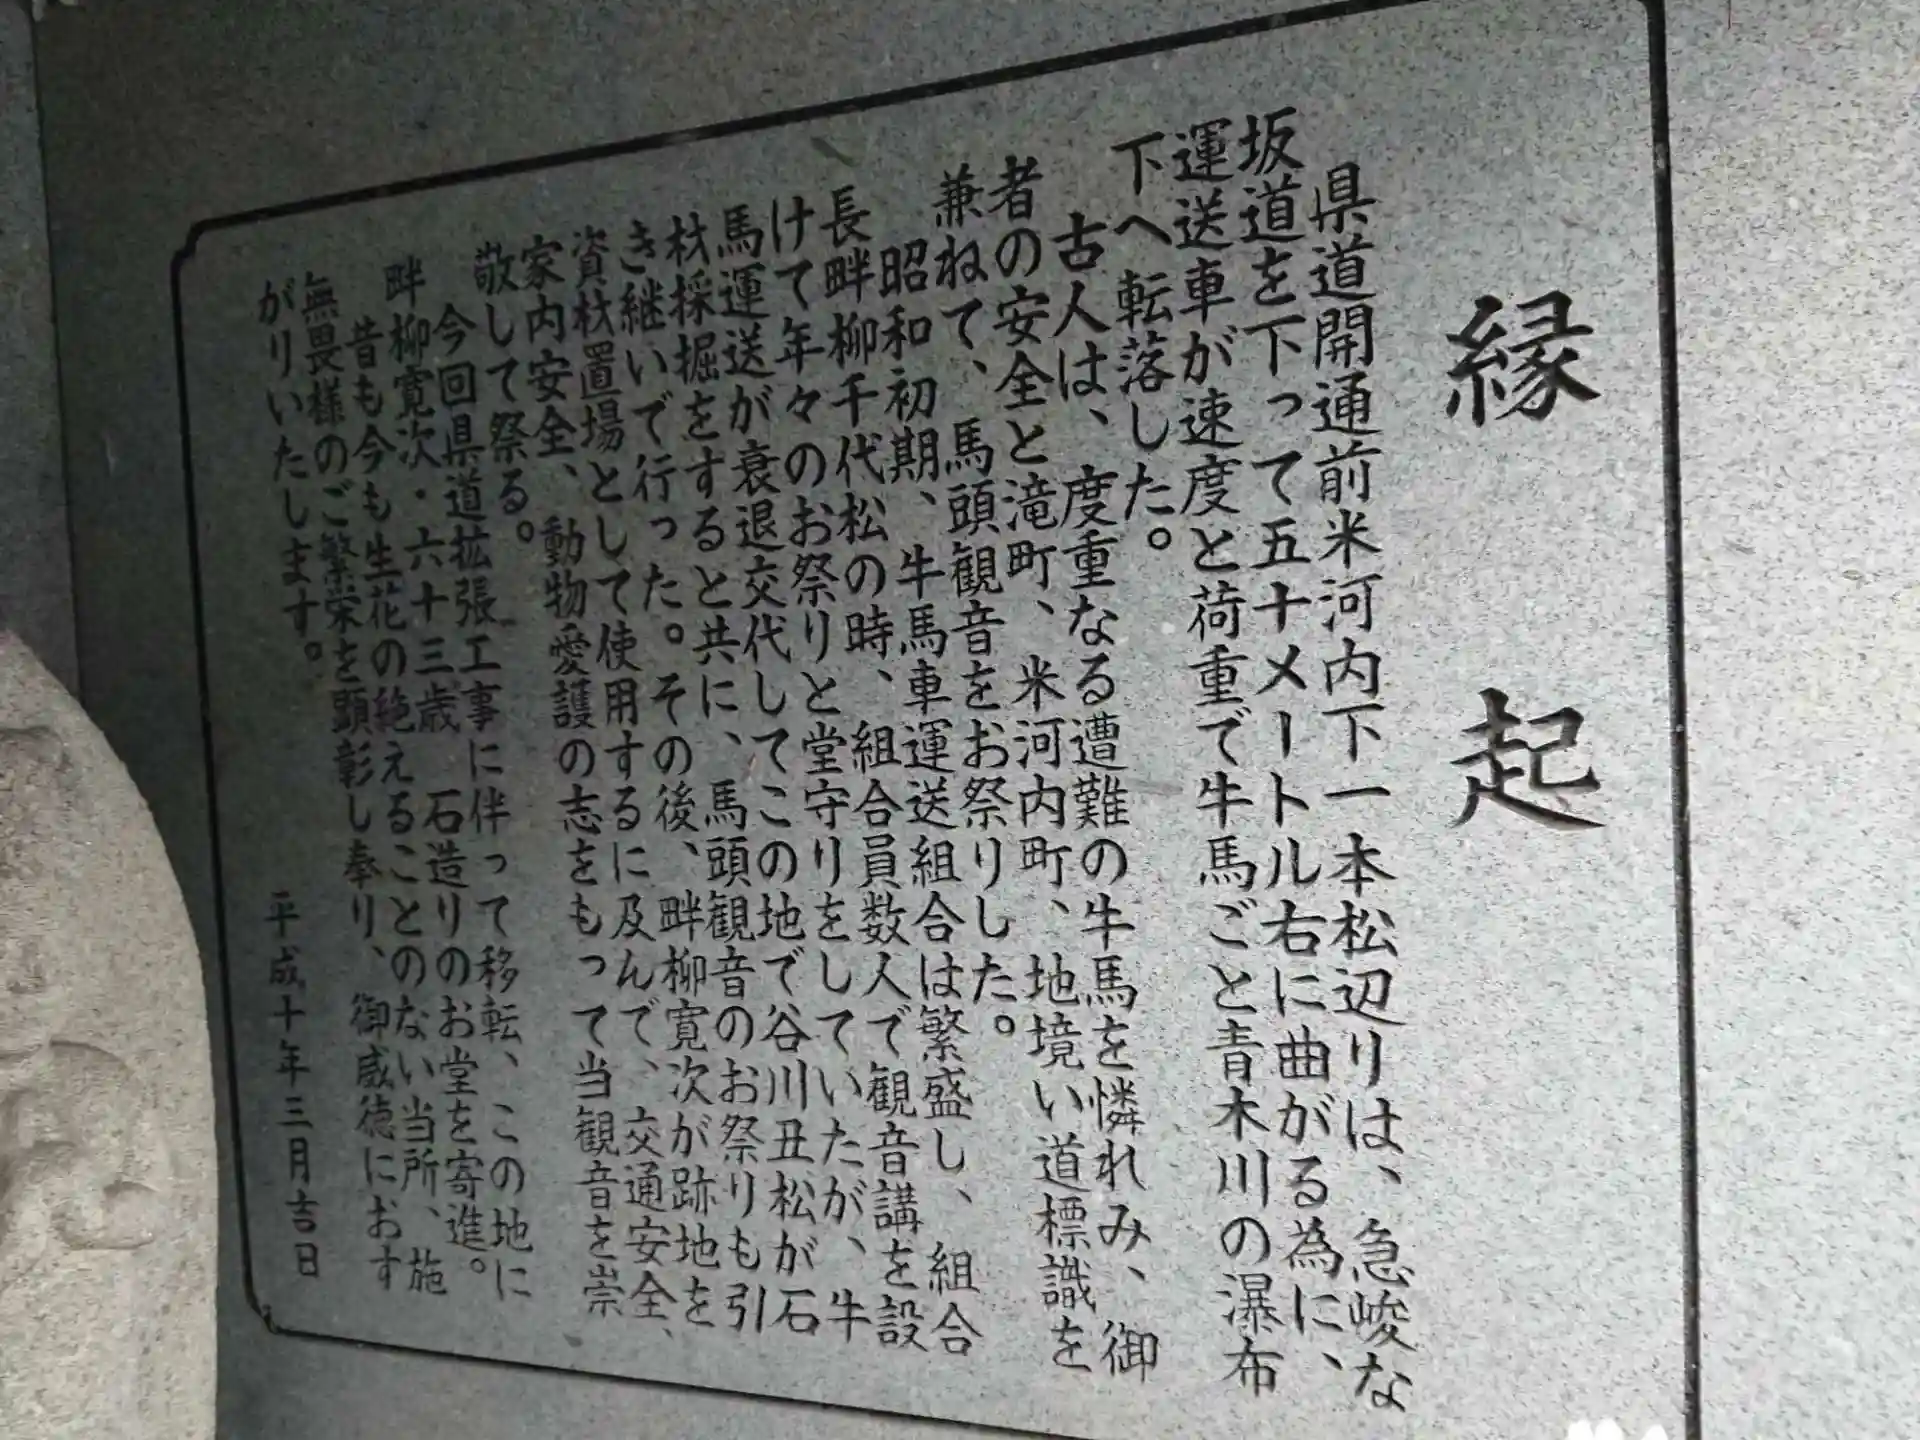 縁起
県道開通前米河内下一本松辺りは、急峻な
坂道を下って五十メートル右に曲がる為に、
運送車が速度と荷重で牛馬ごと青木川の瀑布
下へ転落した。
古人は、度重なる遭難の牛馬を憐れみ、御
者の安全と滝町、米河内町、地境い道標識を
兼ねて、馬頭観音をお祭りした。
昭和初期、牛馬車運送組合は繁盛し、組合
長畔柳千代松の時、組合員数人で観音講を設
けて年々のお祭りと堂守りをしていたが、牛
馬運送が衰退交代してこの地で谷川丑松が石
材採掘をすると共に、馬頭観音のお祭りも引
き継いで行った。その後、畔柳寛次が跡地を
資材置場として使用するに及んで、交通安全、
家内安全、動物愛護の志をもって当観音を崇
敬して祭る。
今回県道拡張工事に伴って移転、この地に
畔柳寛次・六十三歳 石造りのお堂を寄進。
昔も今も生花の絶えることのない当所、施
無畏様のご繁栄を顕彰し奉り、御威徳におす
がりいたします。
平成十年三月吉日